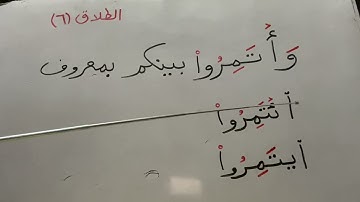 الطلاق (٦)
وَأْتَمِرُوا بينكم بمعروف
ٱئْتَمِرُوا
ٱيتَمِرُوا